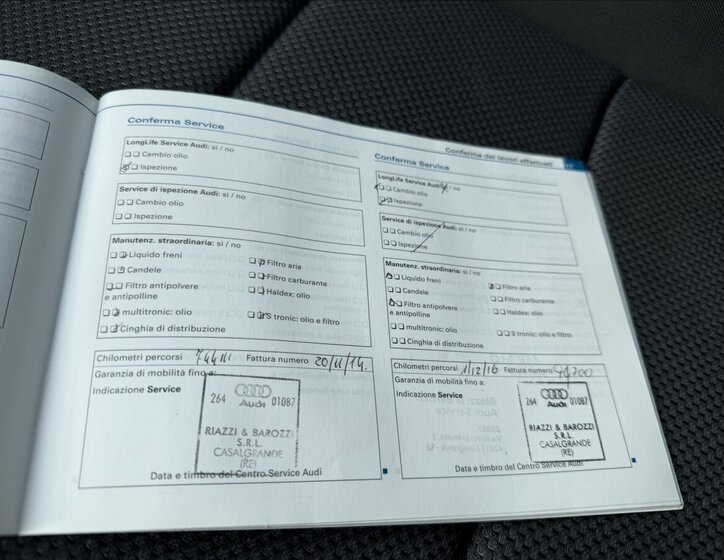 Conferma Service
LongLife Service Audi: sì / no
Cambio olio
Ispezione
Service di ispezione Audi: sì / no
Cambio olio
Ispezione
Manutenz. straordinaria: sì / no
Liquido freni
Filtro aria
Candele
Filtro carburante
Filtro antipolvere
e antipolline
Haldex: olio
multitronic: olio
S tronic: olio e filtro
Cinghia di distribuzione
Chilometri percorsi Fattura numero 20/11/14.
Garanzia di mobilità fino a:
Indicazione Service
264 Audi 01087
RIAZZI & BAROZZI
S.R.L.
CASALGRANDE
(RE)
Data e timbro del Centro Service Audi
Conferma dei lavori effettuati
Conferma Service
LongLife Service Audi: / no
Cambio olio
Ispezione
Service di ispezione Audi: sì / no
Cambio olio
Ispezione
Manutenz. straordinaria: sì / no
Liquido freni
Filtro aria
Candele
Filtro carburante
Filtro antipolvere
e antipolline
Haldex: olio
multitronic: olio
S tronic: olio e filtro
Cinghia di distribuzione
Chilometri percorsi 1/12/16 Fattura numero 94700
Garanzia di mobilità fino a:
Indicazione Service
264 Audi 01087
RIAZZI & BAROZZI
S.R.L.
CASALGRANDE
(RE)
Data e timbro del Centro Service Audi